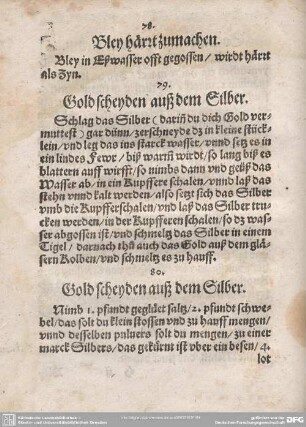 78.
Bley härtt zumachen.
Bley in Eßwasser offt gegossen / wirdt härtt
als Zyn.
79.
Gold scheyden auß dem Silber.
Schlag das Silber (dariñ du dich Gold ver-
muttest) gar dünn / zerschneyde dz in kleine stück-
lein / vnd leg das ins starck wasser / vnnd setz es in
ein lindes Fewr / biß warm wirdt / so lang biß es
blattern auff wirfft / so nimbs dann vnd geüß das
Wasser ab / in ein Kupffere schalen / vnnd laß das
stehn vnnd kalt werden / also setzt sich das Silber
vmb die Kupfferschalen / vnd laß das Silber tru-
cken werden / in der Kupfferen schalen / so dz was-
ser abgossen ist / vnd schmeltz das Silber in einem
Tigel / darnach thů auch das Gold auß dem glä-
sern Kolben / vnd schmeltz es zu hauff.
80.
Gold scheyden auß dem Silber.
Nimb 1. pfandt geglüet saltz / 2. pfundt schwe-
bel / das solt du klein stossen vnd zu hauff mengen /
vnnd desselben puluers solt du mengen / zu einer
marck Silbers / das gekürnt ist vber ein besen / 4.
lot